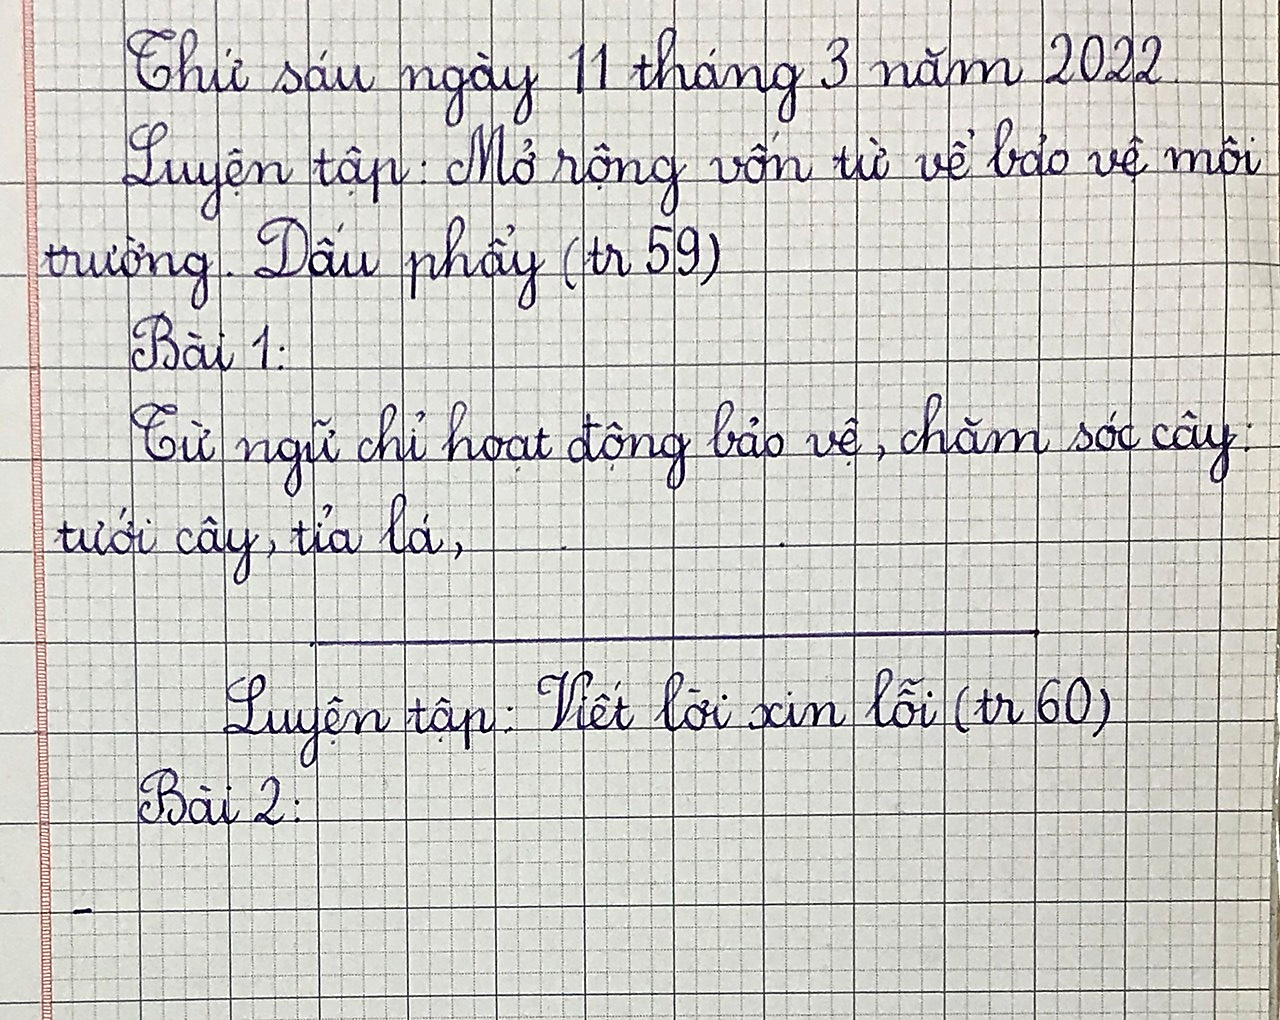 Thứ sáu ngày 11 tháng 3 năm 2022
Luyện tập: Mở rộng vốn từ về bảo vệ môi
trường. Dấu phẩy (tr 59)
Bài 1:
Từ ngữ chỉ hoạt động bảo vệ, chăm sóc cây:
tưới cây, tỉa lá,
Luyện tập: Viết lời xin lỗi (tr 60)
Bài 2:
-